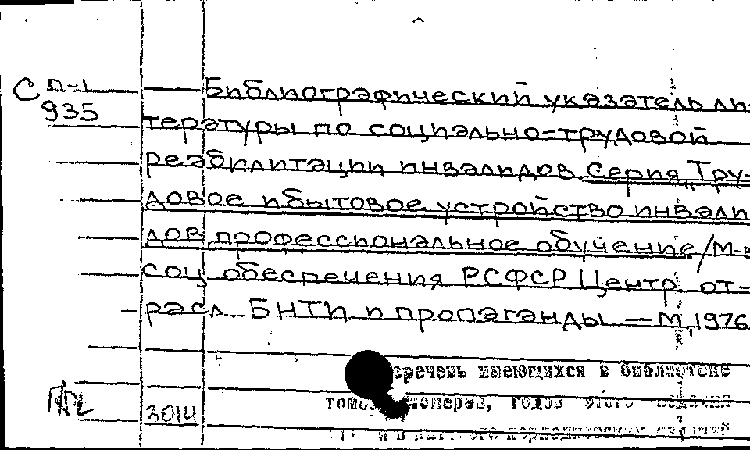 С П-1 Библиографический указатель ли-
935 тературы по социально-трудовой
реабилитации инвалидов. Серия „Тру-
довое и бытовое устройство инвали-
дов, профессиональное обучение/М-во
соц. обеспечения РСФСР Центр. от-
расл. БНТИ и пропаганды — М, 1976
перечень имеющихся в библиотеке
номеров, годов этого издания
3014